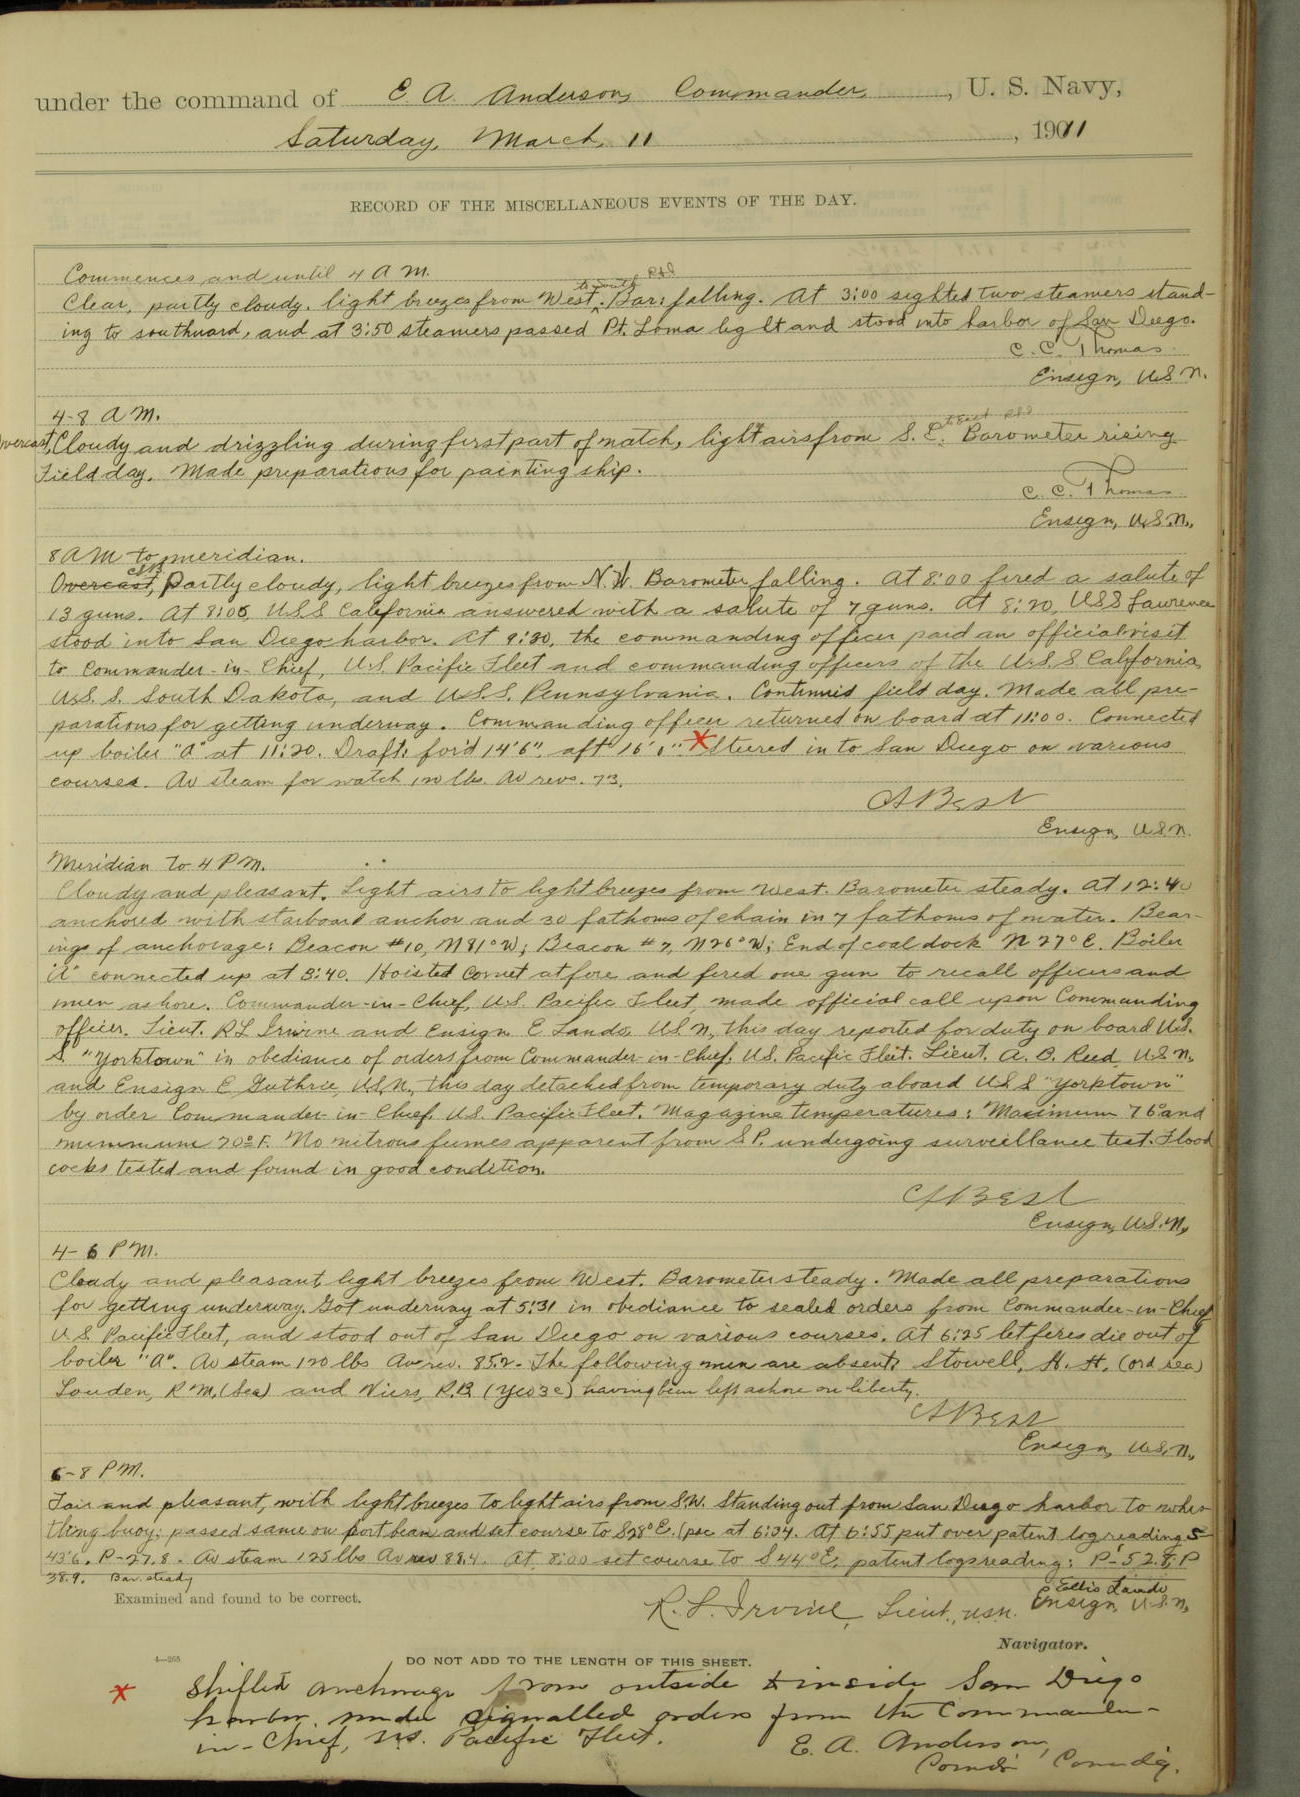 under the command of E. A. Anderson, Commander, U. S. Navy,
Saturday, March, 11, 1911
RECORD OF THE MISCELLANEOUS EVENTS OF THE DAY.
Commences and until 4 A M.
Clear, partly cloudy, light breezes from West to South. Bar: falling. At 3:00 sighted two steamers stand-
ing to southward, and at 3:50 steamers passed Pt. Loma lig lt and stood into harbor of San Diego.
C. C. Thomas
Ensign, U.S N.
4-8 A M.
Overcast, Cloudy and drizzling during first part of watch, light airs from S. E. to East Barometer rising
Field day. Made preparations for painting ship.
C. C. Thomas
Ensign, U.S.N.,
8 A M to meridian.
Overcast, Partly cloudy, light breezes from N.W. Barometer falling. At 8:00 fired a salute of
13 guns. At 8:05, U.S.S California answered with a salute of 7 guns. At 8:20, U.S.S Lawrence
stood into San Diego harbor. At 9:30, the commanding officer paid an official visit
to Commander-in-Chief, U.S. Pacific Fleet and commanding officers of the U.S.S California,
U.S. S. South Dakota, and U.S.S. Pennsylvania. Continued field day. Made all pre-
parations for getting underway. Commanding officer returned on board at 11:00. Connected
up boiler "A" at 11:20. Draft: for'd 14'6", aft 16'1" X Steered in to San Diego on various
courses. Av steam for watch 120 lbs. Av revs. 73.
C A Best
Ensign, U.S.N.
Meridian to 4 P M.
Cloudy and pleasant. Light airs to light breezes from West. Barometer steady. At 12:40
anchored with starboard anchor and 30 fathoms of chain in 7 fathoms of water. Bear-
ings of anchorage: Beacon #10, N 81° W; Beacon # 7, N 26° W; End of coal dock N 27° E. Boiler
"A" connected up at 3:40. Hoisted Cornet at fore and fired one gun to recall officers and
men ashore. Commander-in-Chief, U.S. Pacific Fleet, made official call upon Commanding
officer. Lieut. R L Irvine and Ensign E Lando, U.S N., this day reported for duty on board U.S.
S. "Yorktown" in obediance of orders from Commander-in-Chief, U.S. Pacific Fleet. Lieut. A. B. Reed, U.S N.
and Ensign C Guthrie, U.S.N., this day detached from temporary duty aboard U.S S "Yorktown"
by order Commander-in-Chief, U.S. Pacific Fleet. Magazine temperatures: Maximum 76° and
minimum 70° F. No nitrous fumes apparent from S.P. undergoing surveillance test. Flood
cocks tested and found in good condition.
C A Best
Ensign, U.S.N.,
4- 6 P M.
Cloudy and pleasant light breezes from West. Barometer steady. Made all preparations
for getting underway. Got underway at 5:31 in obediance to sealed orders from Commander-in-Chief
U.S. Pacific Fleet, and stood out of San Diego on various courses. At 6:25 let fires die out of
boiler "A". Av steam 120 lbs Av rev. 85.2. The following men are absent: Stowell, H. H. (ord sea)
Louden, R M, (Sea) and Viers, R.B. (Yeo 3 c) having been left ashore on liberty.
C A Best
Ensign, U.S.N.,
6-8 P M.
Fair and pleasant, with light breezes to light airs from S.W. Standing out from San Diego harbor to whis-
tling buoy; passed same on port beam and set course to S28°E. (psc at 6:34. At 6:55 put over patent log reading S-
43.6. P-27.8. Av steam 125 lbs Av rev 88.4. At 8:00 set course to S 44° E, patent logs reading: P-52.8, P
38.9. Bar. steady
Ellis Lando
Ensign, U.S.N.,
Examined and found to be correct.
R. L. Irvine, Lieut., U.S.N.
Navigator.
4—265
DO NOT ADD TO THE LENGTH OF THIS SHEET.
X Shifted anchorage from outside to inside San Diego
harbor under signalled orders from the Commander-
in-Chief, U.S. Pacific Fleet.
E. A. Anderson,
Comdr Comdg.